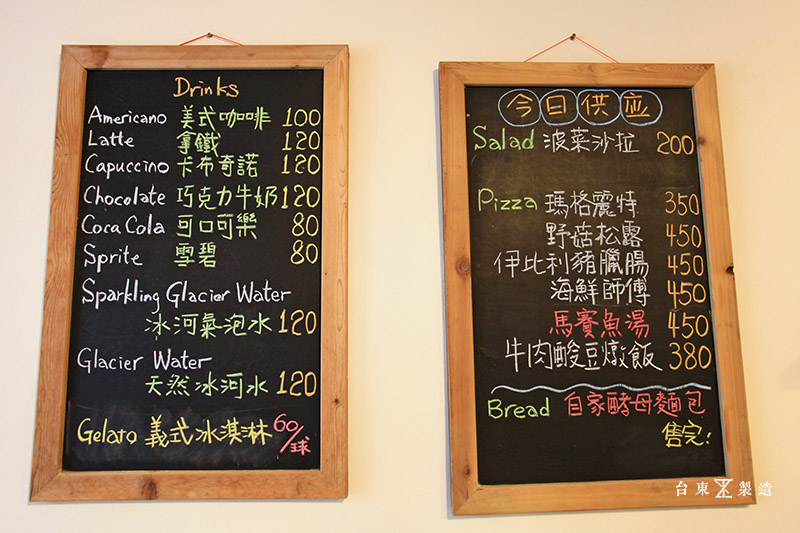 Drinks
Americano 美式咖啡 100
Latte 拿鐵 120
Capuccino 卡布奇諾 120
Chocolate 巧克力牛奶 120
Coca Cola 可口可樂 80
Sprite 雪碧 80
Sparkling Glacier Water
冰河氣泡水 120
Glacier Water
天然冰河水 120
Gelato 義式冰淇淋 60/球
今日供应
Salad 波菜沙拉 200
Pizza 瑪格麗特 350
野菇松露 450
伊比利豬臘腸 450
海鮮師傅 450
馬賽魚湯 450
牛肉酸豆燉飯 380
Bread 自家酵母麵包
售完!
台東製造